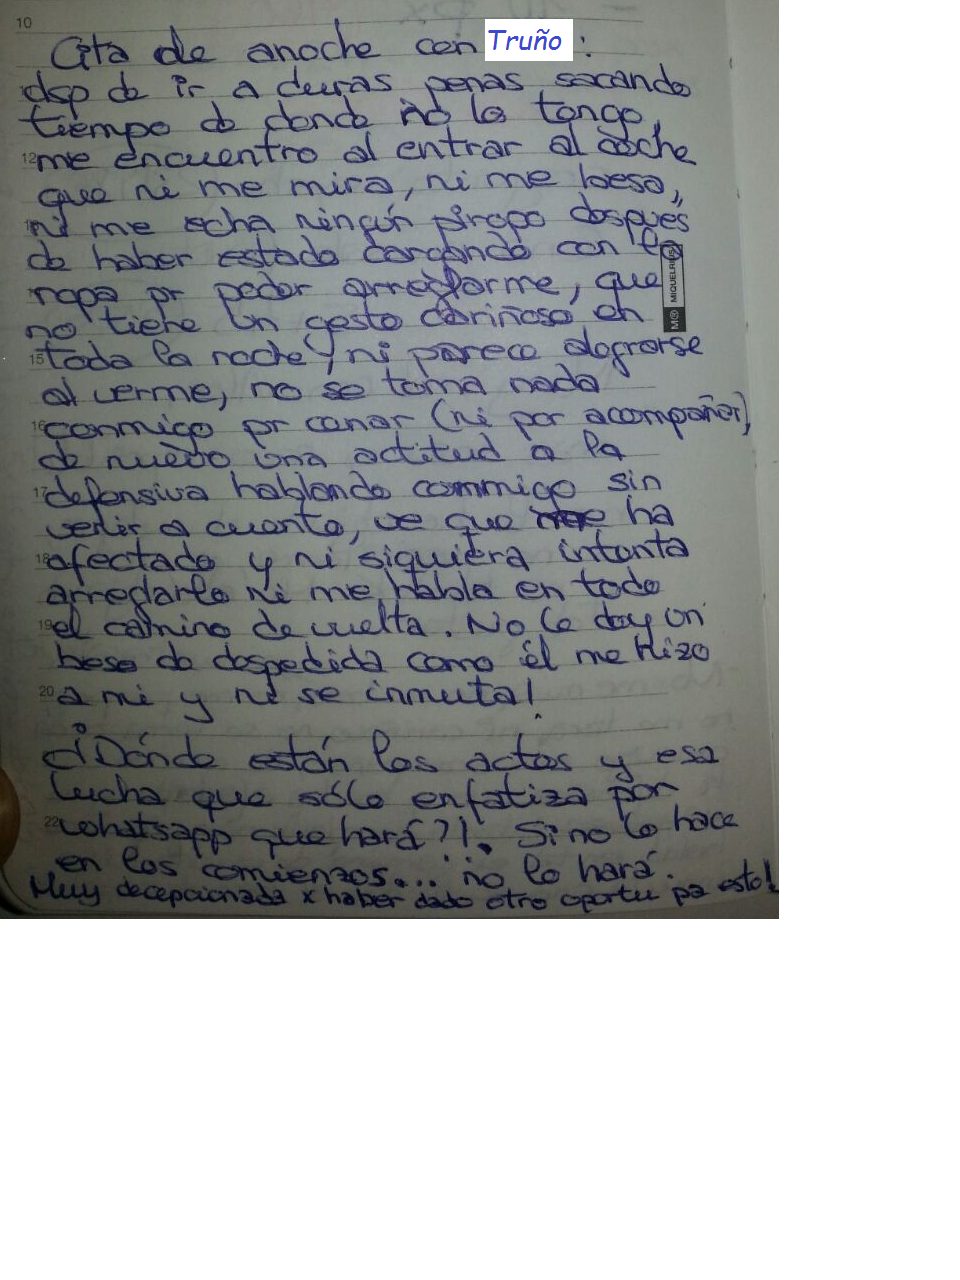 10
Cita de anoche con Truño :
dsp de ir a duras penas sacando
tiempo de donde no lo tengo,
12 me encuentro al entrar al coche
que ni me mira, ni me besa,
ni me echa ningún piropo después
de haber estado cargando con la
ropa pr poder arreglarme, que
M MIQUELRIUS
no tiene un gesto cariñoso en
15 toda la noche y ni parece alegrarse
al verme, no se toma nada
16 conmigo pr cenar (ni por acompañar),
de nuevo una actitud a la
17 defensiva hablando conmigo sin
venir a cuento, ve que me ha
18 afectado y ni siquiera intenta
arreglarlo ni me habla en todo
19 el camino de vuelta. No le doy un
beso de despedida como él me hizo
20 a mi y ni se inmuta!
¿Dónde están los actos y esa
lucha que sólo enfatiza por
22 whatsapp que hará?!. Si no lo hace
en los comienzos... no lo hará.
Muy decepcionada x haber dado otra oportu pa esto!